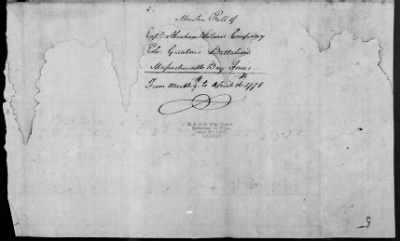 Muster Roll of
Capt. Abraham Watsons Company
Col. Greatons Battalion
Massachusetts Bay Forces
From March 9th to April 16th 1778